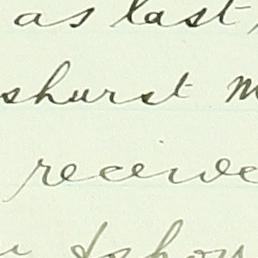 as last
shurst m
receive